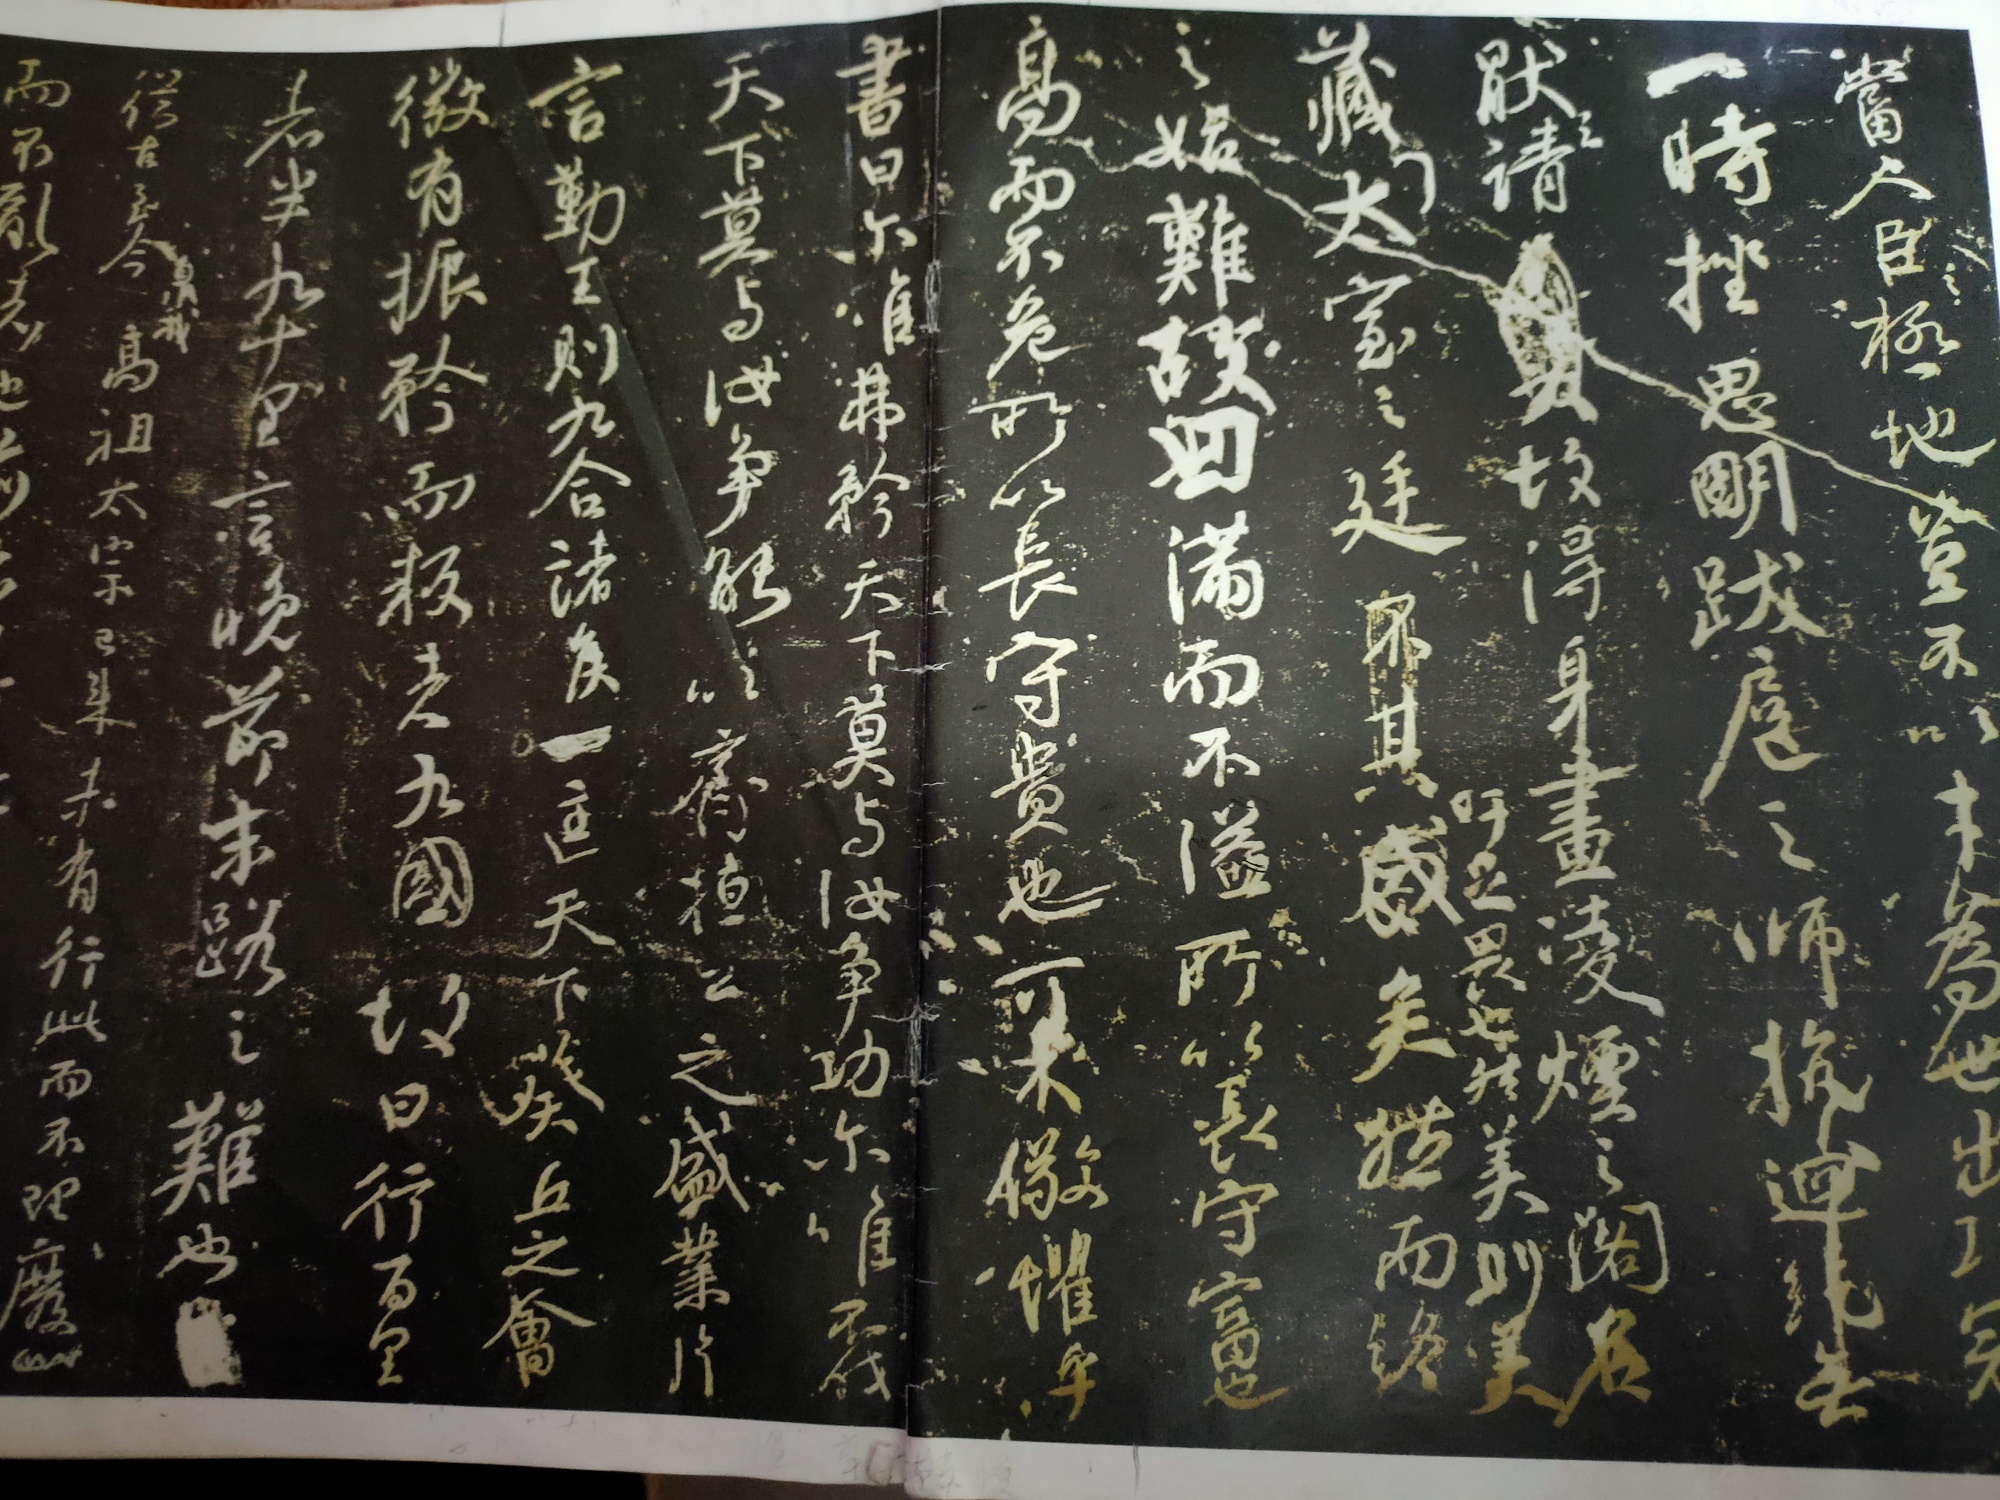 當人臣極地豈不以才為世出功冠
一時挫思明跋扈之師抗迴紇無
猒之請故得身畫凌煙之閣名
藏太室之廷吁足畏也然美則美矣然而終
之始難故曰滿而不溢所以長守富也
高而不危所以長守貴也可不儆懼乎
書曰尔唯弗矜天下莫与汝爭功尔唯不伐
天下莫与汝爭能以齊桓公之盛業片
言勤王則九合諸侯一匡天下葵丘之會
微有振矜而叛者九國故曰行百里
者半九十里言晚節末路之難也
從古至今泉我高祖太宗已来未有行此而不理廢
而不亂者也前